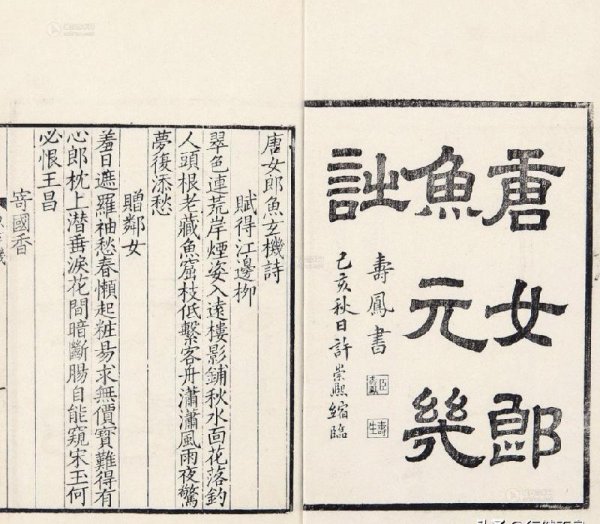 唐女郎
魚元幾
詩
壽鳳書
己亥秋日許崇熙縮臨
唐女郎魚玄機詩
賦得江邊柳
翠色連荒岸煙姿入遠樓影鋪秋水面花落釣
人頭根老藏魚窟枝低繫客舟瀟瀟風雨夜驚
夢復添愁
贈鄰女
羞日遮羅袖愁春懶起粧易求無價寶難得有
心郎枕上潛垂淚花間暗斷腸自能窺宋玉何
必恨王昌
寄國香